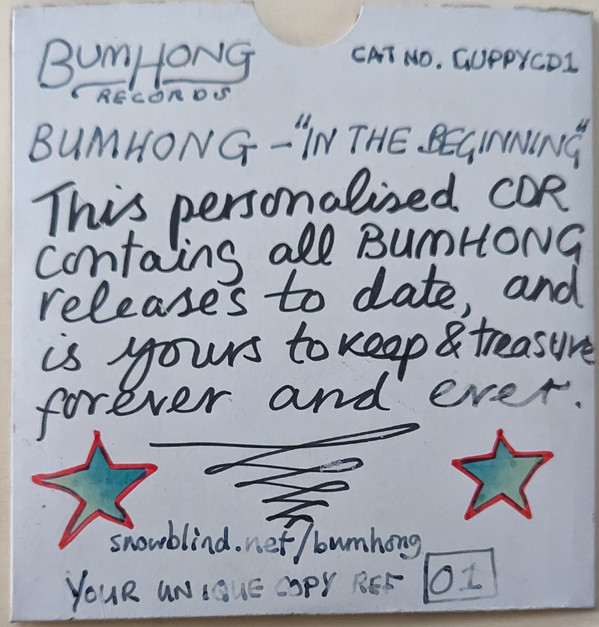 BUMHONG
RECORDS
CAT NO. GUPPYCD1
BUMHONG - "IN THE BEGINNING"
This personalised CDR
contains all BUMHONG
releases to date, and
is yours to keep & treasure
forever and ever.
snowblind.net/bumhong
YOUR UNIQUE COPY REF 01